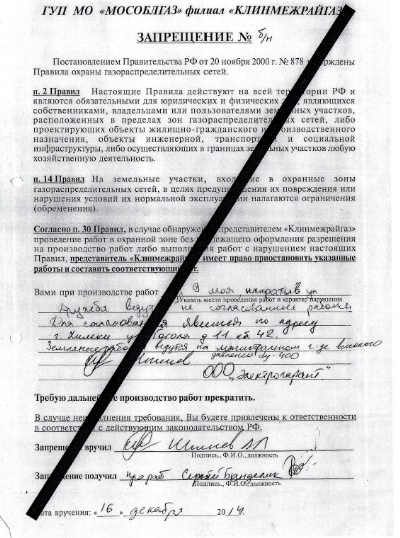 ГУП МО «МОСОБЛГАЗ» филиал «КЛИНМЕЖРАЙГАЗ»
ЗАПРЕЩЕНИЕ № б/н
Постановлением Правительства РФ от 20 ноября 2000 г. № 878
Правила охраны газораспределительных сетей.
п. 2 Правил Настоящие Правила действуют на всей территории РФ и
являются обязательными для юридических и физических являющихся
собственниками, владельцами или пользователями земельных участков,
расположенных в пределах зон газораспределительных сетей, либо
проектирующих объекты жилищно-гражданского и производственного
назначения, объекты инженерной, и социальной
инфраструктуры, либо осуществляющих в границах земельных участков любую
хозяйственную деятельность.
п. 14 Правил На земельные участки, в охранные зоны
газораспределительных сетей, в целях предупреждения их повреждения или
нарушения условий их нормальной эксплуатации налагаются ограничения
(обременения).
Согласно п. 30 Правил, в случае обнаружения представителем «Клинмежрайгаз»
проведение работ в охранной зоне без надлежащего оформления разрешения
на производство работ либо выполнения работ с нарушением настоящих
Правил, представитель «Клинмежрайгаз» имеет право приостановить указанные
работы и составить соответствующий акт.
Вами при производстве работ
Указать место проведения работ и характер нарушения
Дружба ведутся не согласованные работы
Для согласования явиться по адресу
г. Химки ул. Гоголя д 11
Земляные работы ведутся на г-да высокого
давления
ООО „Электрогарант"
Требую дальнейшее производство работ прекратить.
В случае невыполнения требования, Вы будете привлечены к ответственности
в соответствии с действующим законодательством РФ.
Запрещение вручил
Подпись, Ф.И.О., должность
Запрещение получил прораб Сергей
Подпись, Ф.И.О., должность
Дата вручения: «16» декабря 2014